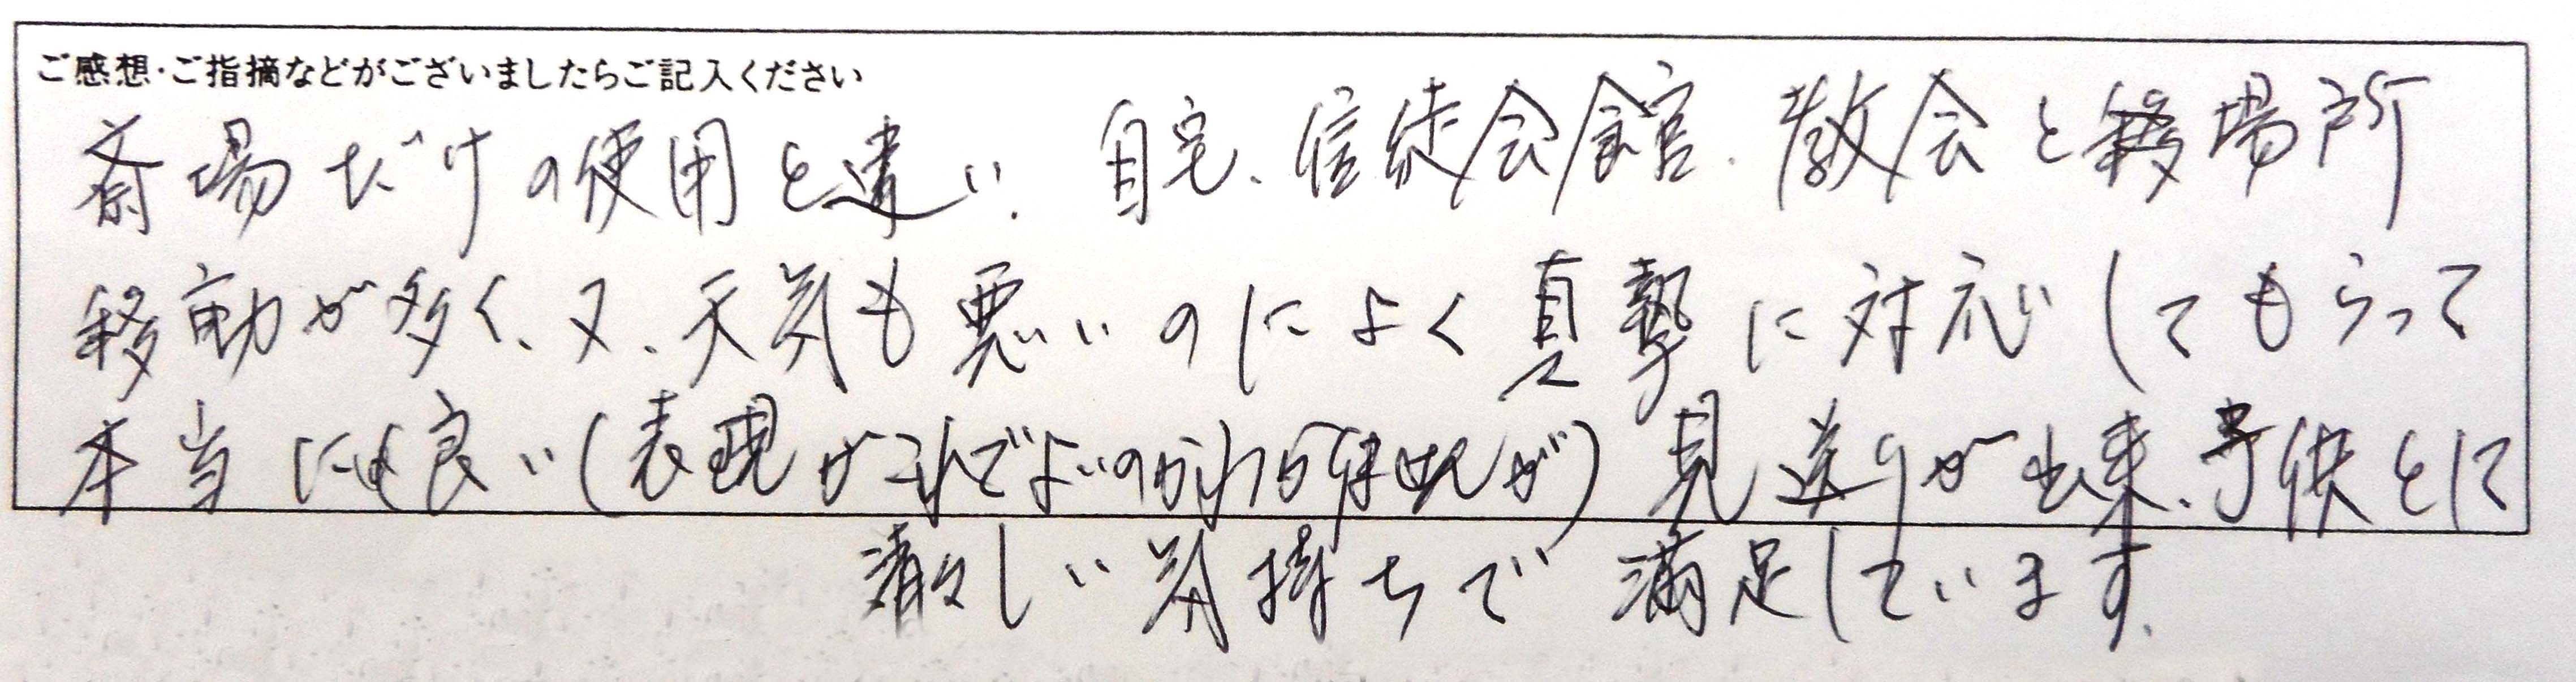 ご感想・ご指摘などがございましたらご記入ください
斎場だけの使用と違い、自宅、信徒会館、教会と場所
移動が多く、又、天気も悪いのによく真摯に対応してもらって
本当に良い(表現がこれでよいのかわかりませんが)見送りが出来、子供とに
清々しい気持ちで満足しています。